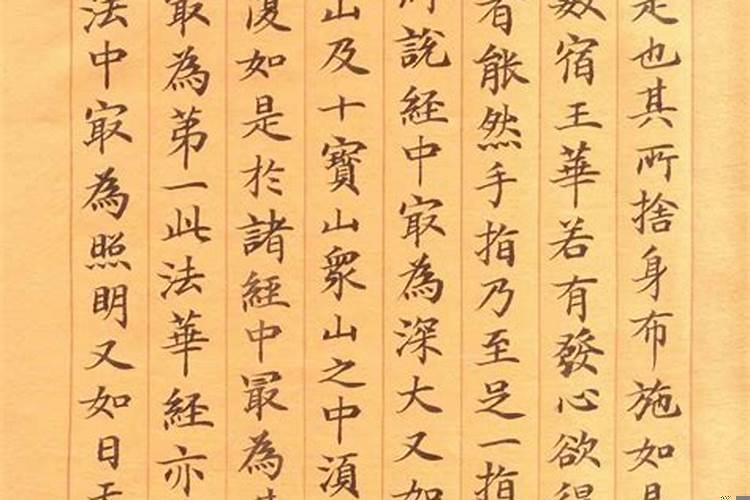 是也其所捨身布施如是
數宿王華若有發心欲得
者能然手指乃至足一指
所說經中冣為深大又如
山及十寶山衆山之中湏
復如是於諸經中最為
冣為苐一此法華經亦
法中冣為照明又如日天